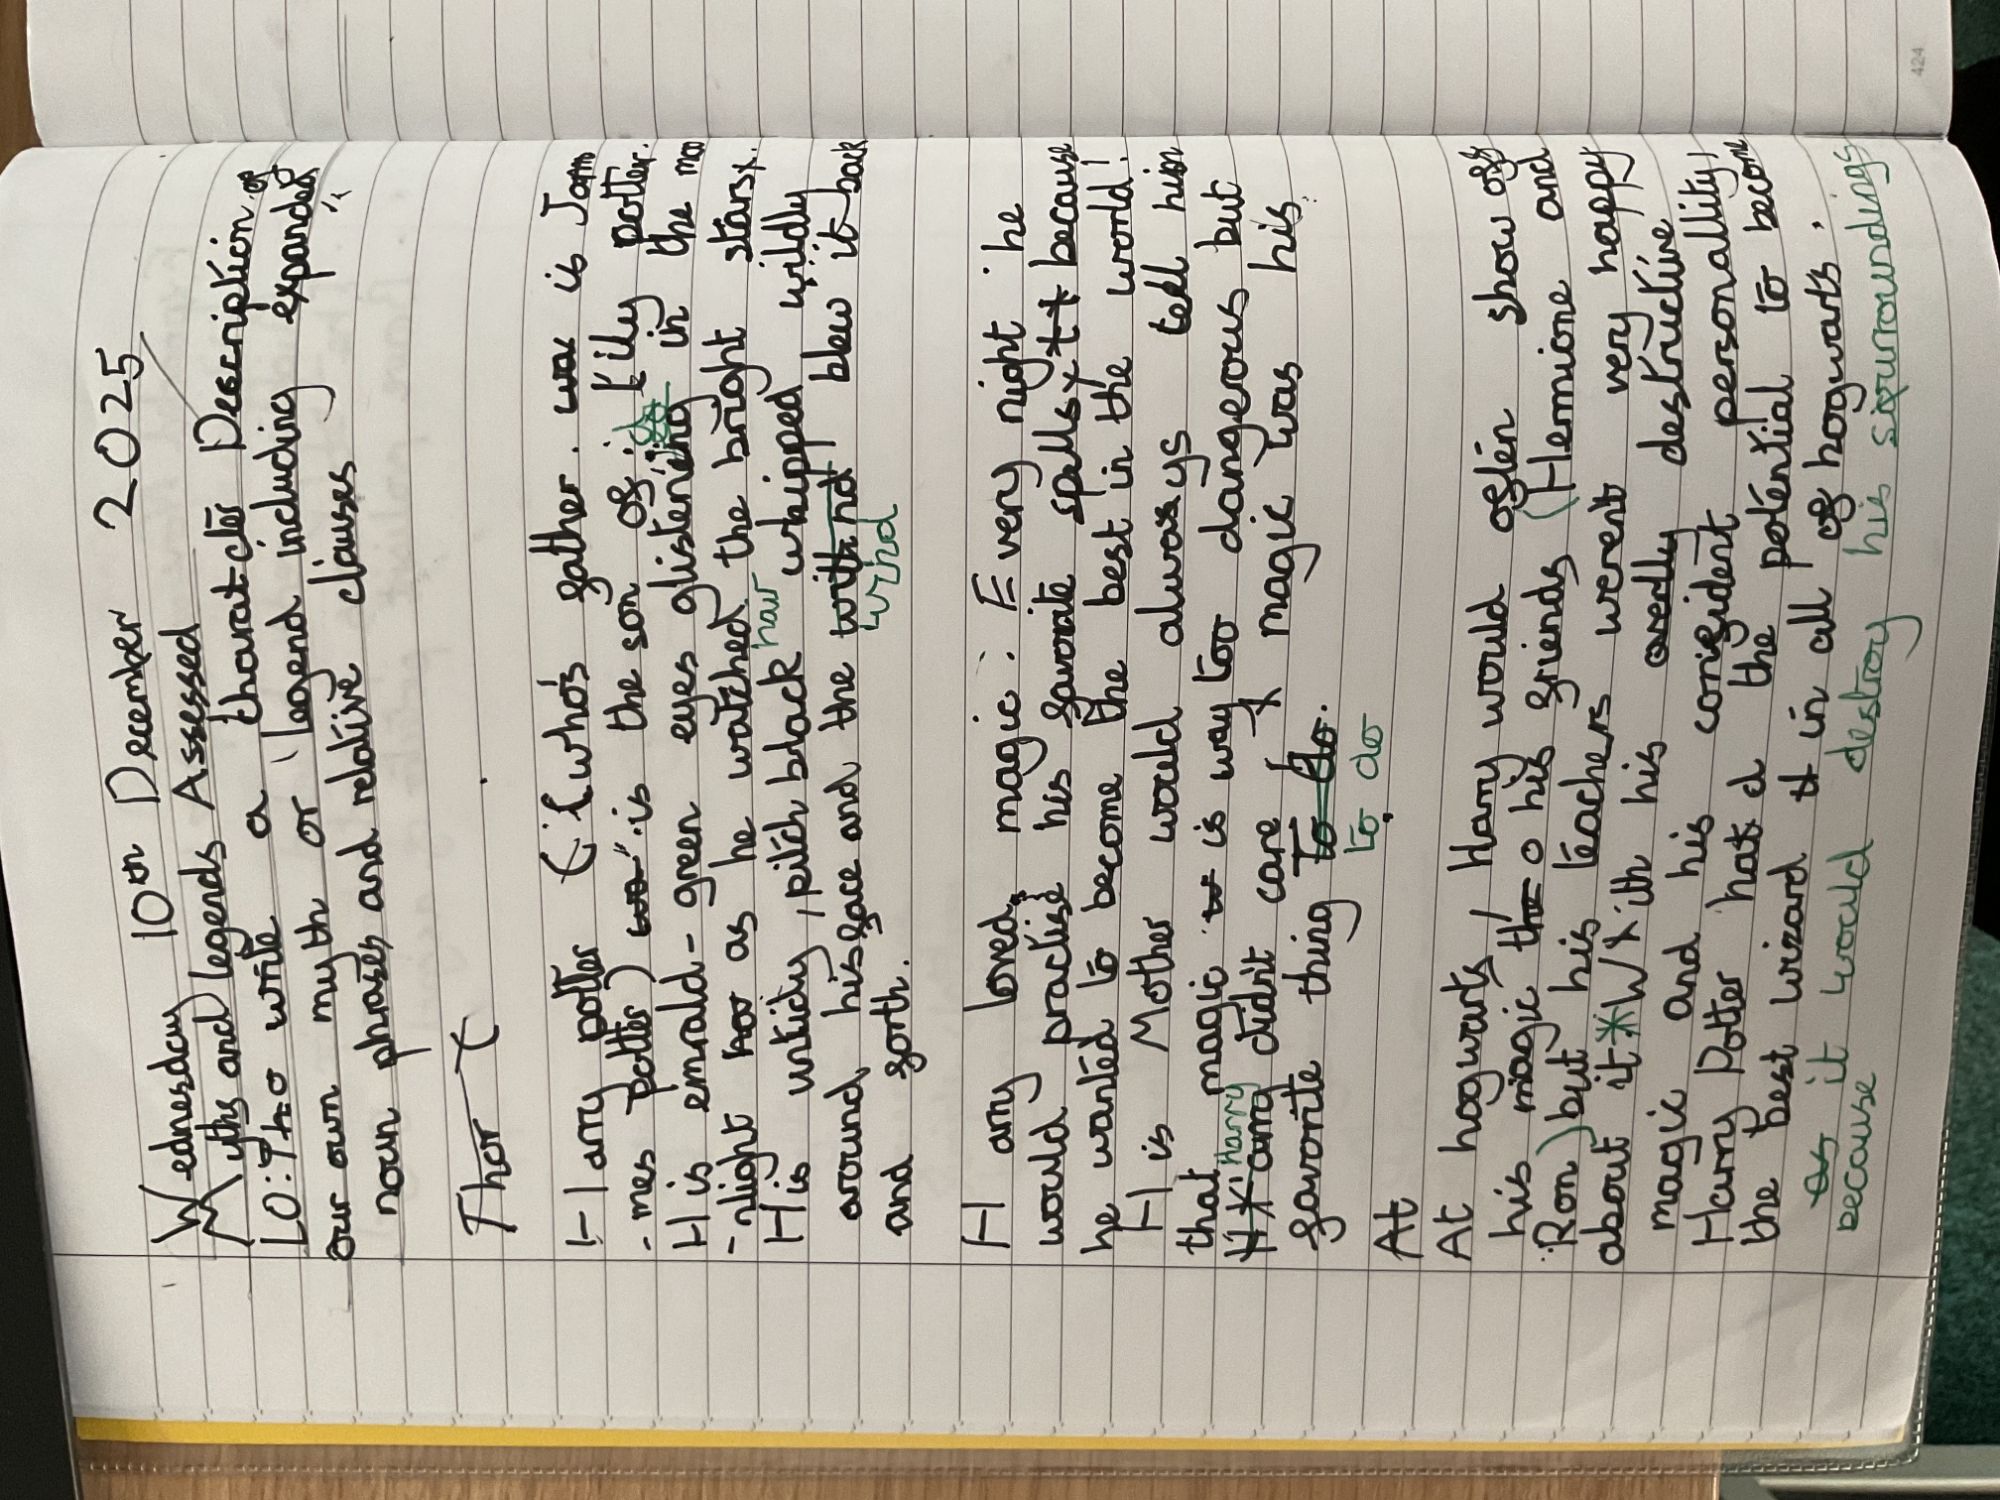 Wednesday 10th December 2025
Myths and legends Assessed
LO: To write a charatcter Description of
our own myth or legend including expanded
noun phrases and relative clauses
Thor
Harry potter (who's father was is Jam
-mes potter) was is the son of lily potter.
His emrald-green eyes glistening in the moo
-nlight has as he watched the bright stars.
His untidy, pitch black hair whipped wildly
around his face and the with nd blew it back
wind
and forth.
Harry loved magic. Every night he
would practise his favorite spells tt because
he wanted to become the best in the world!
His Mother would always tell him
that magic w is way too dangerous but
Harry harry didn't care magic was his
favorite thing to do.
to do
At
At hogwarts, Harry would often show off
his magic th o his friends (Hermione and
Ron) but his teachers werent very happy
about it * With his overlly destructive
magic and his confident personallity,
Harry Potter had the potential to become
the best wizard in all of hogwarts.
as it would destroy his squrroundings
because
424